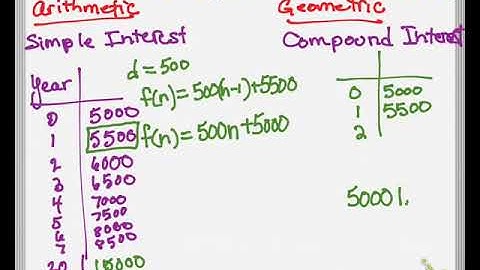 Arithmetic
Simple Interest
Year
0 5000
1 5500
2 6000
3 6500
4 7000
5 7500
6 8000
7 8500
20 15000
d=500
f(n)=500(n-1)+5500
f(n)=500n+5000
Geometric
Compound Interest
0 5000
1 5500
2
5000 1.